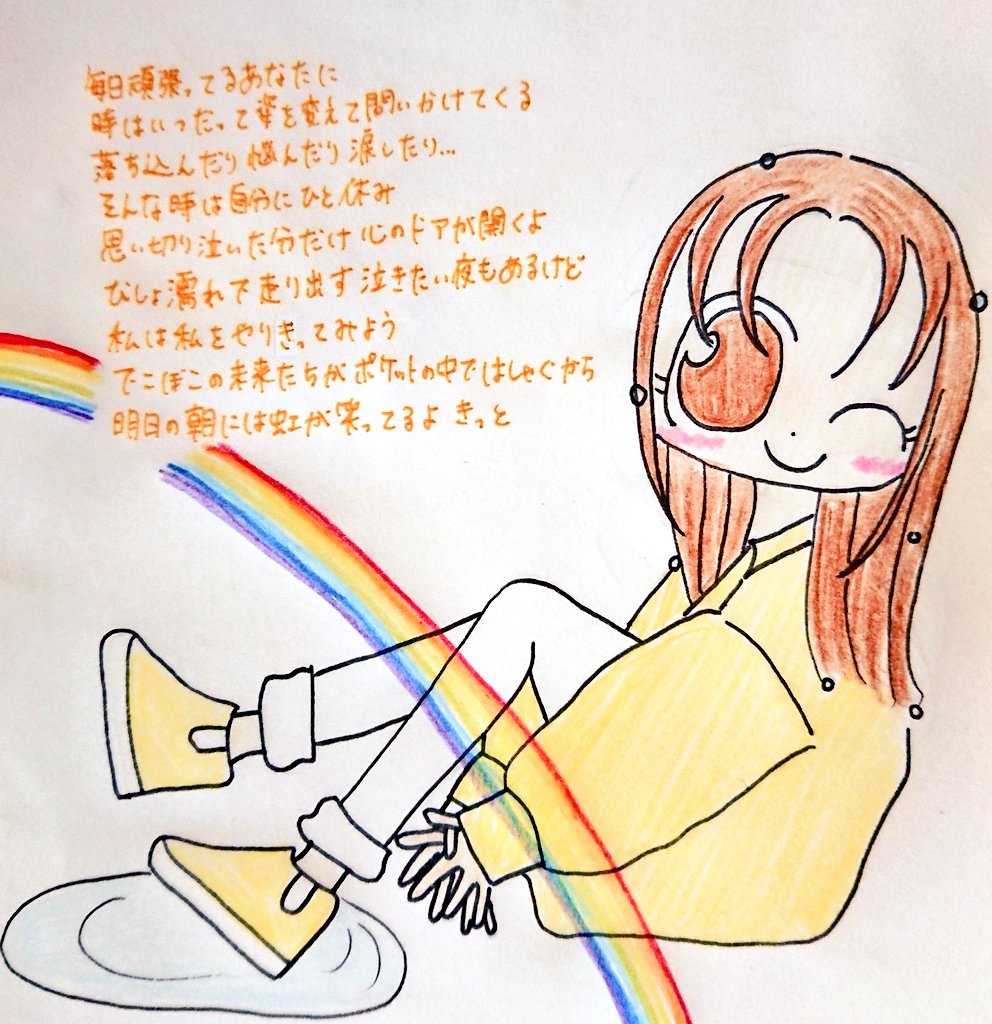 毎日頑張ってるあなたに
時はいつだって姿を変えて問いかけてくる
落ち込んだり悩んだり涙したり...
そんな時は自分にひと休み
思い切り泣いた分だけ心のドアが開くよ
びしょ濡れで走り出す泣きたい夜もあるけど
私は私をやりきってみよう
でこぼこの未来たちがポケットの中ではしゃぐから
明日の朝には虹が笑ってるよ きっと